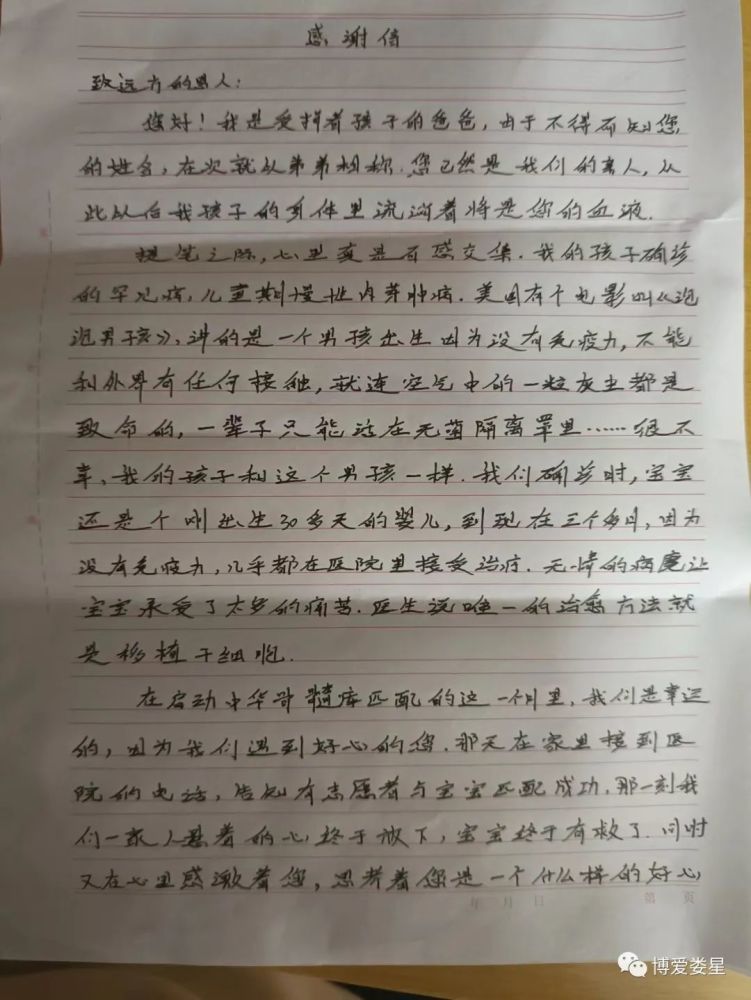 感谢信
致远方的恩人：
您好！我是受捐者孩子的爸爸，由于不得而知您
的姓名，在次就以弟弟相称.您已然是我们的亲人，从
此以后我孩子的身体里流淌着将是您的血液.
提笔之际，心里真是百感交集.我的孩子确诊
的罕见病，儿童期慢性肉芽肿病.美国有个电影叫《泡
泡男孩》，讲的是一个男孩出生因为没有免疫力，不能
和外界有任何接触，就连空气中的一粒灰尘都是
致命的，一辈子只能活在无菌隔离罩里……很不
幸，我的孩子和这个男孩一样.我们确诊时，宝宝
还是个刚出生30多天的婴儿，到现在三个多月，因为
没有免疫力，几乎都在医院里接受治疗.无情的病魔让
宝宝承受了太多的痛苦.医生说唯一的治愈方法就
是移植干细胞.
在启动中华骨髓库匹配的这一个月里，我们是幸运
的，因为我们遇到好心的您.那天在家里接到医
院的电话，告知有志愿者与宝宝匹配成功，那一刻我
们一家人悬着的心终于放下，宝宝终于有救了.同时
又在心里感激着您，思考着您是一个什么样的好心
年 月 日 第 页
博爱娄星